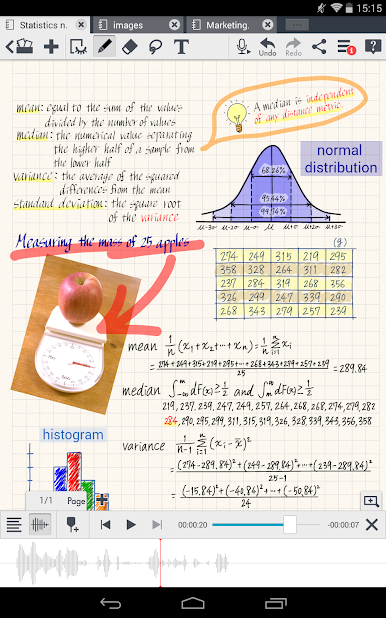 15:15
Statistics n.
images
Marketing.
Undo
Redo
mean: equal to the sum of the values
divided by the number of values
median: the numerical value separating
the higher half of a sample from
the lower half
variance: the average of the squared
differences from the mean
standard deviation: the square root
of the variance
A median is independent
of any distance metric.
normal
distribution
68.26%
95.44%
99.74%
μ-3σ μ-2σ μ-σ μ μ+σ μ+2σ μ+3σ
Measuring the mass of 25 apples
(g)
274 249 315 219 295
358 328 264 311 282
237 284 319 268 356
326 299 247 339 290
268 343 279 257 239
mean 1/n (x₁+x₂+…+xₙ)= 1/n Σ xi
= 274+249+315+219+295+…+268+343+279+257+239 / 25 = 289.84
median ∫ dF(x)≥1/2 and ∫ dF(x)≥1/2
219, 237, 239, 247, 249, 257, 264, 268, 268, 274, 279, 282
284, 290, 295, 299, 311, 315, 319, 326, 328, 339, 343, 356, 358
histogram
variance 1/n-1 Σ (xi - x̄)²
= (274-289.84)²+(249-289.84)²+…+(239-289.84)² / 25-1
= (-15.84)²+(-40.84)²+…+(-50.84)² / 24
1/1 Page
00:00:20
-00:00:07